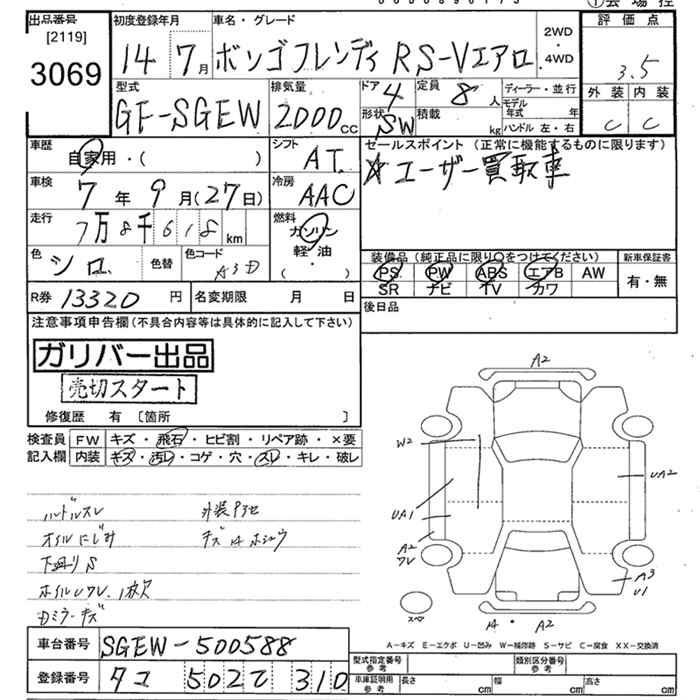 ①会場控
出品番号
[2119]
3069
初度登録年月
14年7月
車名・グレード
ボンゴフレンディ RS-Vエアロ
2WD・4WD
評価点
3.5
外装 内装
C C
型式
GF-SGEW
排気量
2000cc
ドア 4
形状 SW
定員 8人
積載 kg
ディーラー・並行
モデル年式 年
ハンドル 左・右
車歴
自家用・( )
シフト AT
セールスポイント(正常に機能するものに限ります)
☆ユーザー買取車
車検
7年9月(27日)
冷房 AAC
走行
7万8千618km
燃料
ガソリン
軽油
( )
色 シロ
色替
色コード A3D
装備品(純正品に限り○をつけてください)
PS PW ABS エアB AW
SR ナビ TV カワ
新車保証書
有・無
R券 13320円
名変期限 月 日
後日品
注意事項申告欄(不具合内容等は具体的に記入して下さい)
ガリバー出品
売切スタート
修復歴 有 [箇所 ]
検査員 FW キズ・飛石・ヒビ割・リペア跡・×要
記入欄 内装 キズ・汚レ・コゲ・穴・スレ・キレ・破レ
ハンドルスレ
オイルにじみ
キズ A ホシュウ
下廻りS
Dミラーキズ
A2
W2
UA2
UA1
A2
A3
U1
スペア
A2
A-キズ E-エクボ U-凹み W-補修跡 S-サビ C-腐食 XX-交換済
車台番号 SGEW-500588
登録番号 タコ 502 て 310
型式指定番号 参考
類別区分番号 参考
車庫証明用 参考
長さ cm 幅 cm 高さ cm